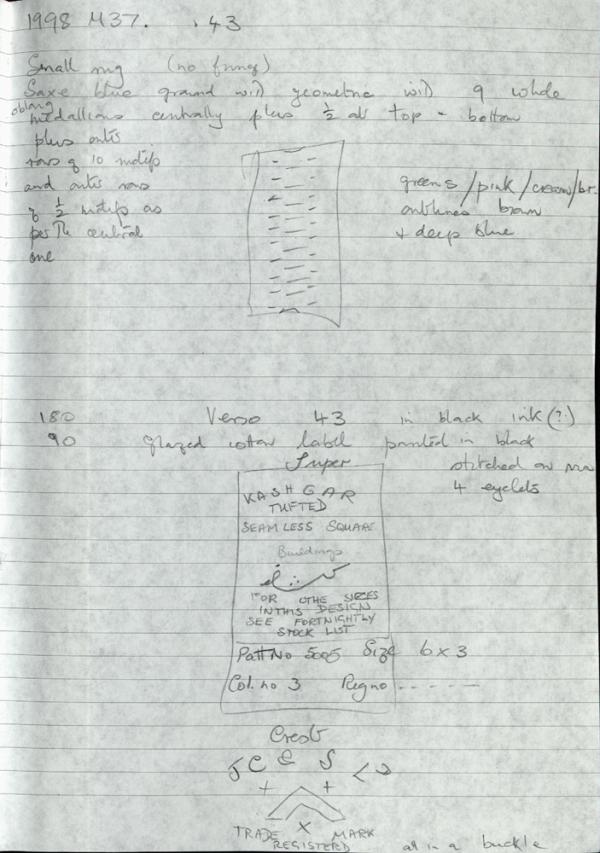 1998 M37. . 43
Small rug (no fringe)
Saxe blue ground with geometric with 9 whole
oblong
medallions centrally plus ½ at top + bottom
plus outer
rows of 10 motifs
and outer rows
of ½ motifs as
per the central
one
greens/pink/cream/br.
outlines brown
+ deep blue
180 Verso 43 in black ink (?)
90 glazed cotton label printed in black
stitched on
4 eyelets
Super
KASHGAR
TUFTED
SEAMLESS SQUARE
Buildings
FOR OTHE SIZES
IN THIS DESIGN
SEE FORTNIGHTLY
STOCK LIST
Patt No 5005 Size 6 x 3
Col. no 3 Reg no - - - - - -
Crest
C & S
+ +
TRADE X MARK
REGISTERED
all in a buckle